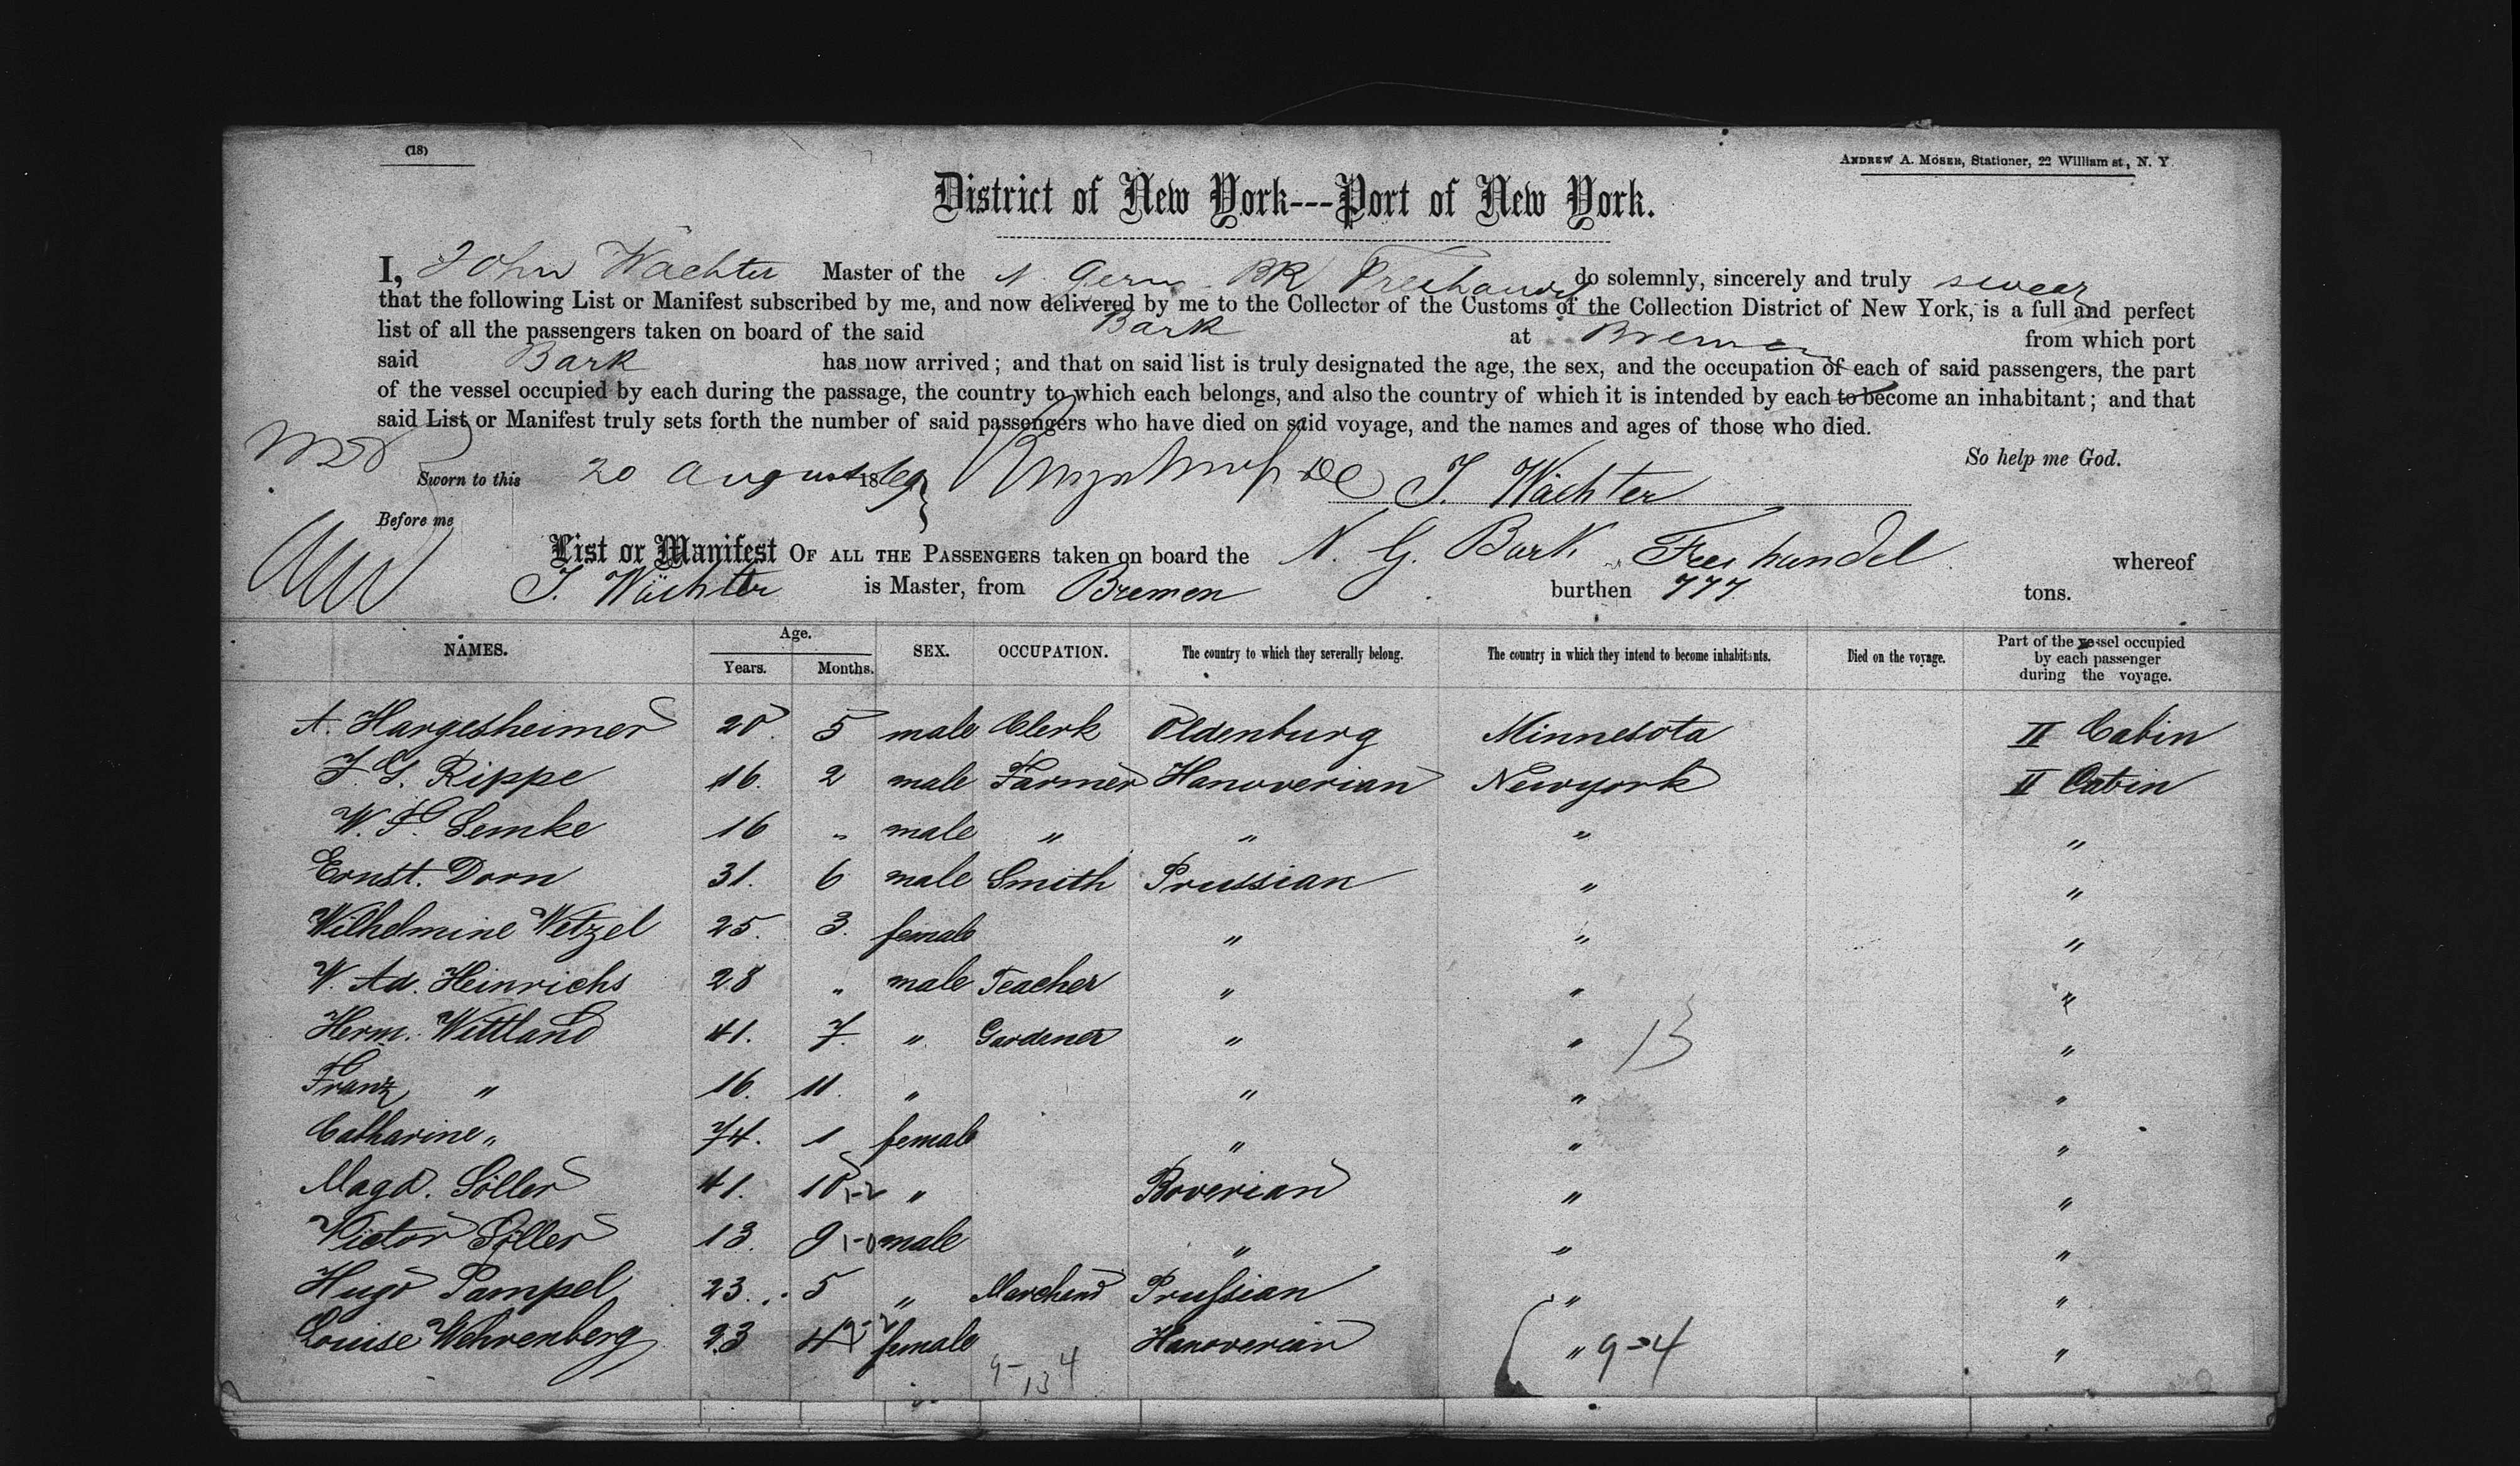 (18)
ANDREW A. MOSER, Stationer, 22 William st, N. Y.
District of New York---Port of New York.
I, John Wachter Master of the N. Germ. BK Freehandel do solemnly, sincerely and truly swear
that the following List or Manifest subscribed by me, and now delivered by me to the Collector of the Customs of the Collection District of New York, is a full and perfect
list of all the passengers taken on board of the said Bark at Bremen from which port
said Bark has now arrived; and that on said list is truly designated the age, the sex, and the occupation of each of said passengers, the part
of the vessel occupied by each during the passage, the country to which each belongs, and also the country of which it is intended by each to become an inhabitant; and that
said List or Manifest truly sets forth the number of said passengers who have died on said voyage, and the names and ages of those who died.
So help me God.
Sworn to this 20 August 1869 J. Wächter
Before me
List or Manifest OF ALL THE PASSENGERS taken on board the N. G. Bark Freihandel whereof
J. Wächter is Master, from Bremen burthen 777 tons.
NAMES. Age. Years. Months. SEX. OCCUPATION. The country to which they severally belong. The country in which they intend to become inhabitants. Died on the voyage. Part of the vessel occupied by each passenger during the voyage.
A. Hargesheimer 20. 5 male Clerk Oldenburg Minnesota II Cabin
J. G. Rippe 16. 2 male Farmer Hanoverian Newyork II Cabin
W. F. Lemke 16 " male " " " "
Ernst. Dorn 31. 6 male Smith Prussian " "
Wilhelmine Wetzel 25. 3. female " " "
W. Ad. Heinrichs 28 " male Teacher " " "
Herm. Wittland 41. 7. " Gardener " " "
13
Franz " 16. 11. " " " "
Catharine " 74. 1 female " " "
Magd. Söller 41. 10 " Boverian " "
Victor Söller 13. 9 male " " "
Hugo Pampel 23. 5 " Marchand Prussian " "
Louise Wehrenberg 23 4 female Hanoverian " 9-4 "
9-4
13